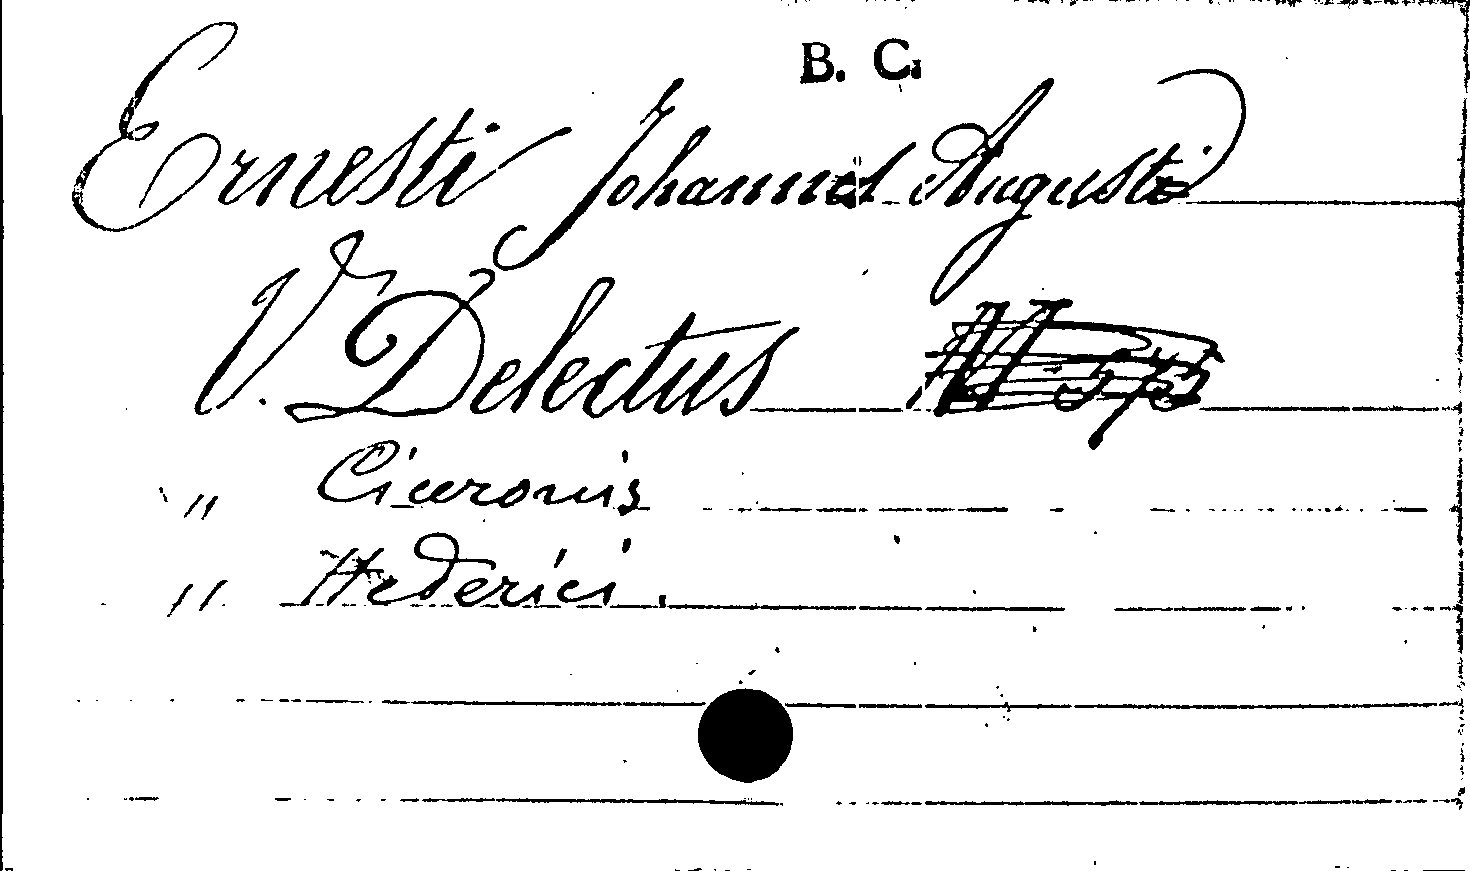 B. C.
Ernesti Johannes Augusti
V. Delectus
" Ciceronis
" Hederici.